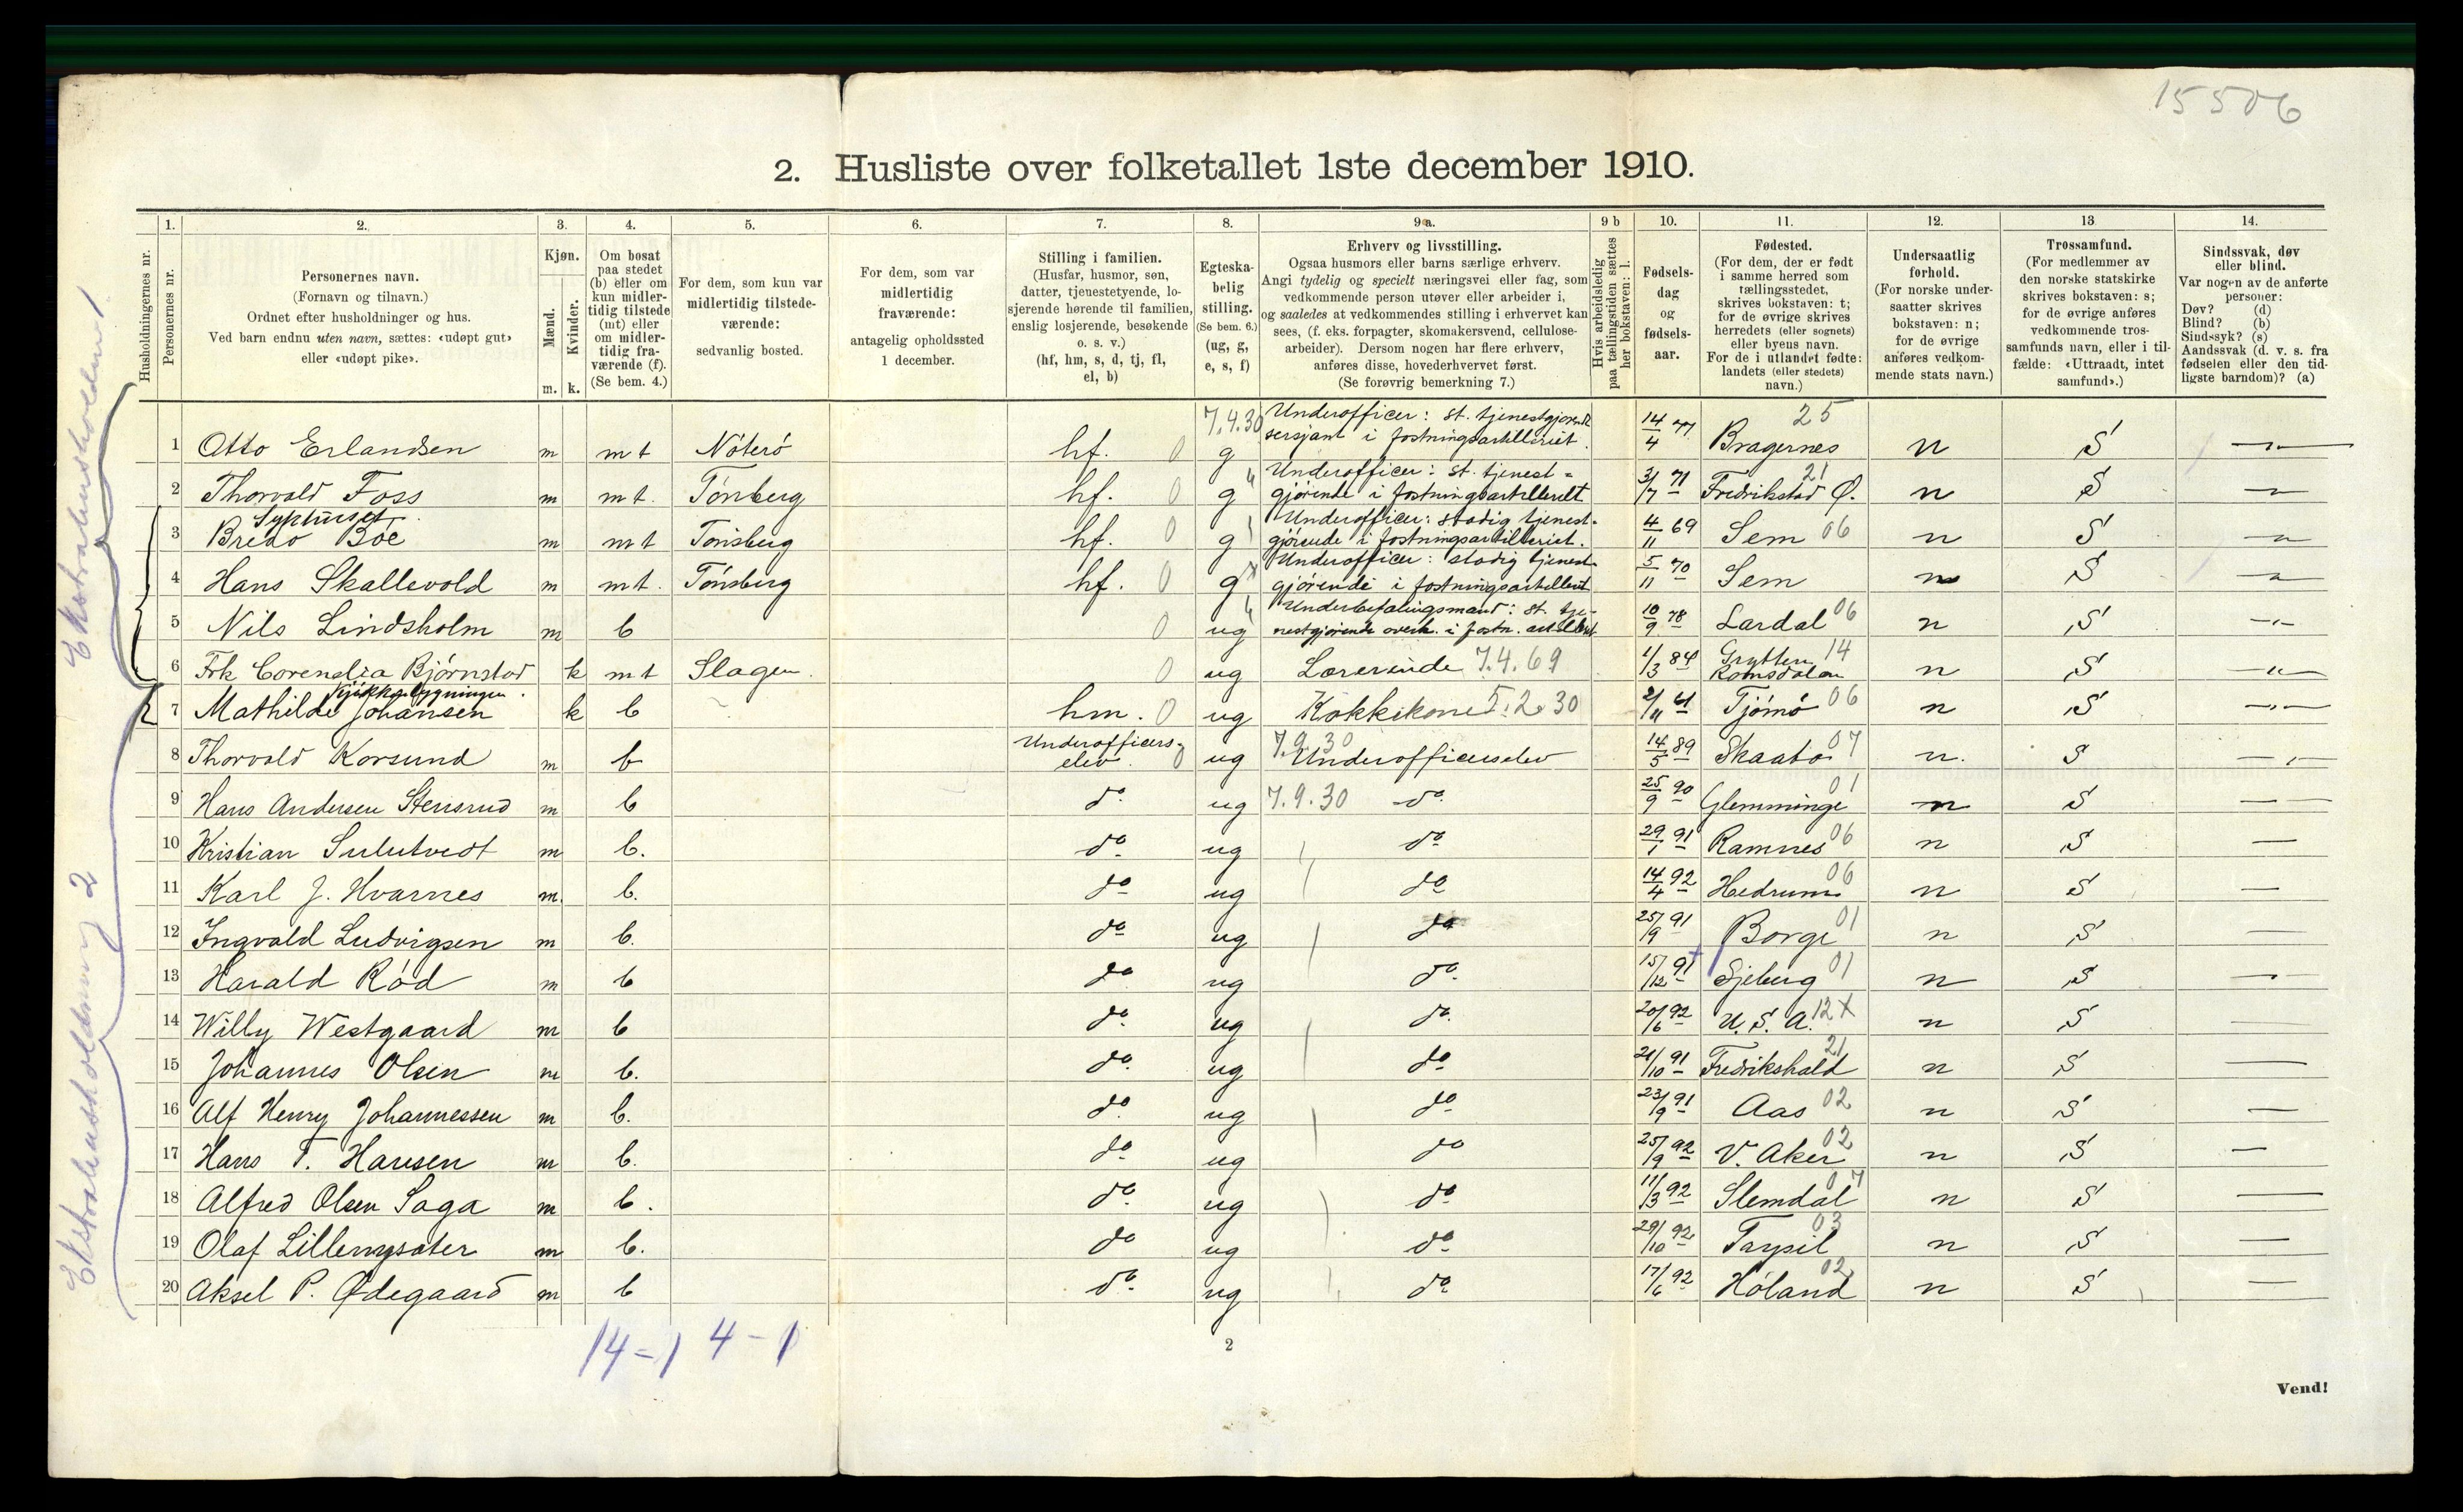 15506
2. Husliste over folketallet 1ste december 1910.
Husholdningernes nr.
1.
Personernes nr.
2.
Personernes navn.
(Fornavn og tilnavn.)
Ordnet efter husholdninger og hus.
Ved barn endnu uten navn, sættes: «udøpt gut»
eller «udøpt pike».
3.
Kjøn.
Mænd.
Kvinder.
m. k.
4.
Om bosat
paa stedet
(b) eller om
kun midler-
tidig tilstede
(mt) eller
om midler-
tidig fra-
værende (f).
(Se bem. 4.)
5.
For dem, som kun var
midlertidig tilstede-
værende:
sedvanlig bosted.
6.
For dem, som var
midlertidig
fraværende:
antagelig opholdssted
1 december.
7.
Stilling i familien.
(Husfar, husmor, søn,
datter, tjenestetyende, lo-
sjerende hørende til familien,
enslig losjerende, besøkende
o. s. v.)
(hf, hm, s, d, tj, fl,
el, b)
8.
Egteska-
belig
stilling.
(Se bem. 6.)
(ug, g,
e, s, f)
9 a.
Erhverv og livsstilling.
Ogsaa husmors eller barns særlige erhverv.
Angi tydelig og specielt næringsvei eller fag, som
vedkommende person utøver eller arbeider i,
og saaledes at vedkommendes stilling i erhvervet kan
sees, (f. eks. forpagter, skomakersvend, cellulose-
arbeider). Dersom nogen har flere erhverv,
anføres disse, hovederhvervet først.
(Se forøvrig bemerkning 7.)
9 b
Hvis arbeidsledig
paa tællingstiden sættes
her bokstaven: l.
10.
Fødsels-
dag
og
fødsels-
aar.
11.
Fødested.
(For dem, der er født
i samme herred som
tællingsstedet,
skrives bokstaven: t;
for de øvrige skrives
herredets (eller sognets)
eller byens navn.
For de i utlandet fødte:
landets (eller stedets)
navn.)
12.
Undersaatlig
forhold.
(For norske under-
saatter skrives
bokstaven: n;
for de øvrige
anføres vedkom-
mende stats navn.)
13
Trossamfund.
(For medlemmer av
den norske statskirke
skrives bokstaven: s;
for de øvrige anføres
vedkommende tros-
samfunds navn, eller i til-
fælde: «Uttraadt, intet
samfund».)
14.
Sindssvak, døv
eller blind.
Var nogen av de anførte
personer:
Døv? (d)
Blind? (b)
Sindssyk? (s)
Aandssvak (d. v. s. fra
fødselen eller den tid-
ligste barndom)? (a)
7.4.30 Underofficer: st. tjenestgjørende 25
1 Otto Erlandsen m mt Nøterø hf. 0 g sersjant i fæstningsartilleriet. 14/4 77 Bragernes n S
Underofficer: st. tjenest- 21
2 Thorvald Foss m mt. Tønsberg hf. 0 g gjørende i fæstningsartilleriet 3/7 71 Fredrikstad Ø. n S
Sykhuset Underofficer: stadig tjenest-
3 Bredo Bøe m mt Tønsberg hf. 0 g gjørende i fæstningsartilleriet. 4/11 69 Sem 06 n S
Underofficer: stadig tjenest-
4 Hans Skallevold m mt. Tønsberg hf. 0 g gjørende i fæstningsartilleriet 5/11 70 Sem n S
Underbefalingsmand: st. tje-
5 Nils Lindsholm m b 0 ug nestgjørende overk. i fæstn. artilleriet 10/9 78 Lardal 06 n S
Grytten 14
6 Frk Corendia Bjørnstad k mt Slagen 0 ug Lærerinde 7.4.69 1/3 84 Romsdalen n S
Kjøkkenbygningen.
7 Mathilde Johansen k b hm. 0 ug Kokkekone 5.2.30 2/11 61 Tjømø 06 n S
Underofficers- 7.9.30
8 Thorvald Korsund m b elev 0 ug Underofficerselev 14/5 89 Skaatø 07 n. S
9 Hans Andersen Stensrud m b do ug 7.9.30 do 25/9 90 Glemminge 01 n S
10 Kristian Sulutvedt m b. do ug do 29/1 91 Ramnes 06 n S
11 Karl J. Hvarnes m. b. do ug do 14/4 92 Hedrum 06 n S
12 Ingvald Ludvigsen m b. do ug do 25/9 91 Borge 01 n S
13 Harald Rød m b do ug do 15/12 91 Sjeberg 01 n S
14 Willy Westgaard m b do ug do 20/6 92 U. S. A. 12X n S
15 Johannes Olsen m b. do ug do 21/10 91 Fredrikshald 21 n S
16 Alf Henry Johannessen m b. do ug do 23/9 91 Aas 02 n S
17 Hans T. Hansen m b. do ug do 25/9 92 V. Aker 02 n S
18 Alfred Olsen Saga m b. do ug do 11/3 92 Slemdal 07 n S
19 Olaf Lillenysæter m b. do ug do 29/10 92 Trysil 03 n S
20 Aksel P. Ødegaard m b do ug do 17/6 92 Høland 02 n S
Ekstrahusholdning 1
Ekstrahusholdning 2
14-1 4-1
2
Vend!